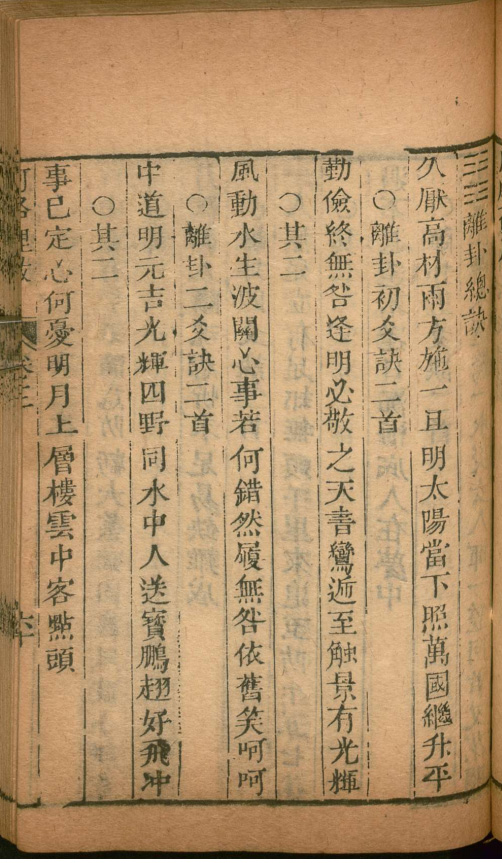 離卦總訣
久厭高材雨方施一旦明太陽當下照萬國繼升平
○離卦初爻訣二首
勤儉終無咎逢明必敬之天書鸞遞至触景有光輝
○其二
風動水生波關心事若何錯然履無咎依舊笑呵呵
○離卦二爻訣二首
中道明元吉光輝四野同水中人送寳鵬翅好飛冲
○其二
事已定心何憂明月上層樓雲中客點頭
河洛理数
卷之三
六十